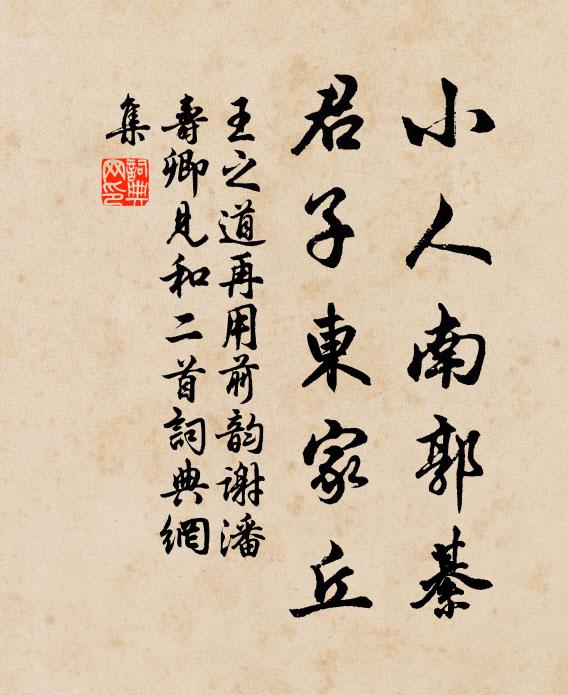 小人南郭綦
君子東家丘
王之道再用前韵谢潘
壽卿見和二首詞典網
集
詞典
网印